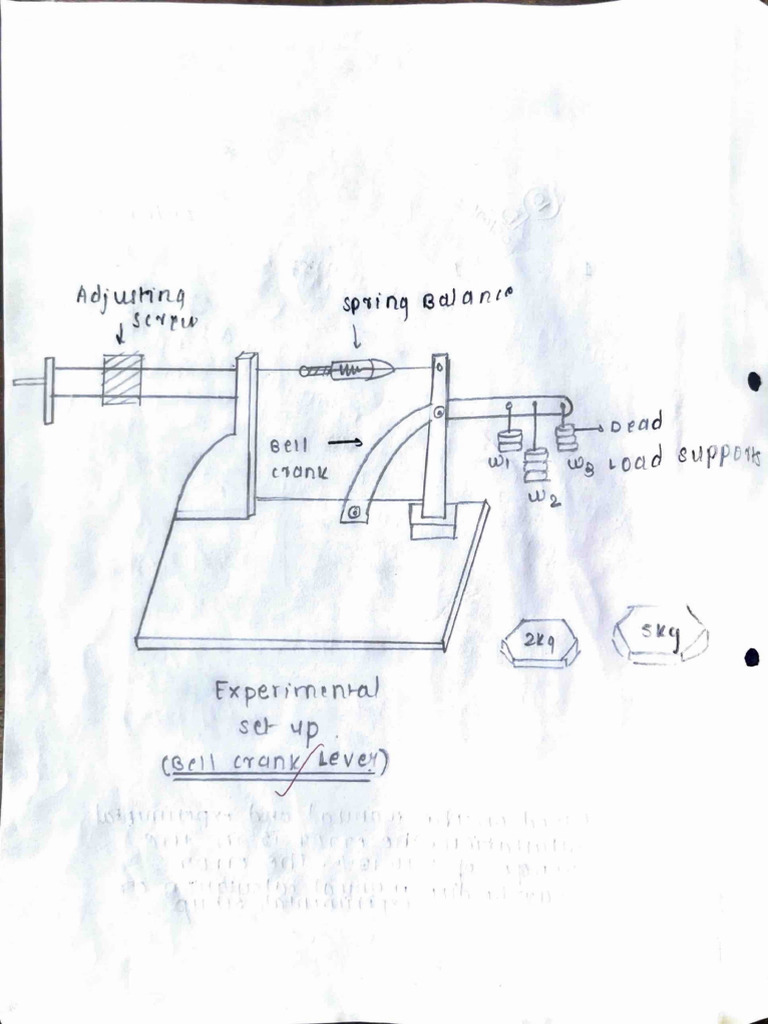 Adjusting
screw
Spring Balance
Bell
crank
Dead
Load supports
W1
W2
W3
2Kg
5Kg
Experimental
set up
(Bell crank Lever)